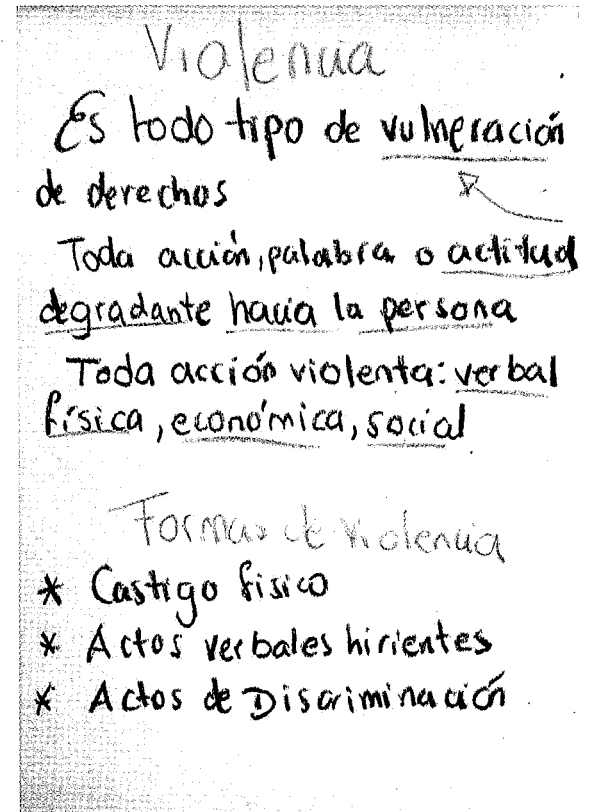 Violencia
Es todo tipo de vulneración
de derechos
Toda acción, palabra o actitud
degradante hacia la persona
Toda acción violenta: verbal
física, económica, social
Formas de violencia
* Castigo físico
* Actos verbales hirientes
* Actos de Discriminación